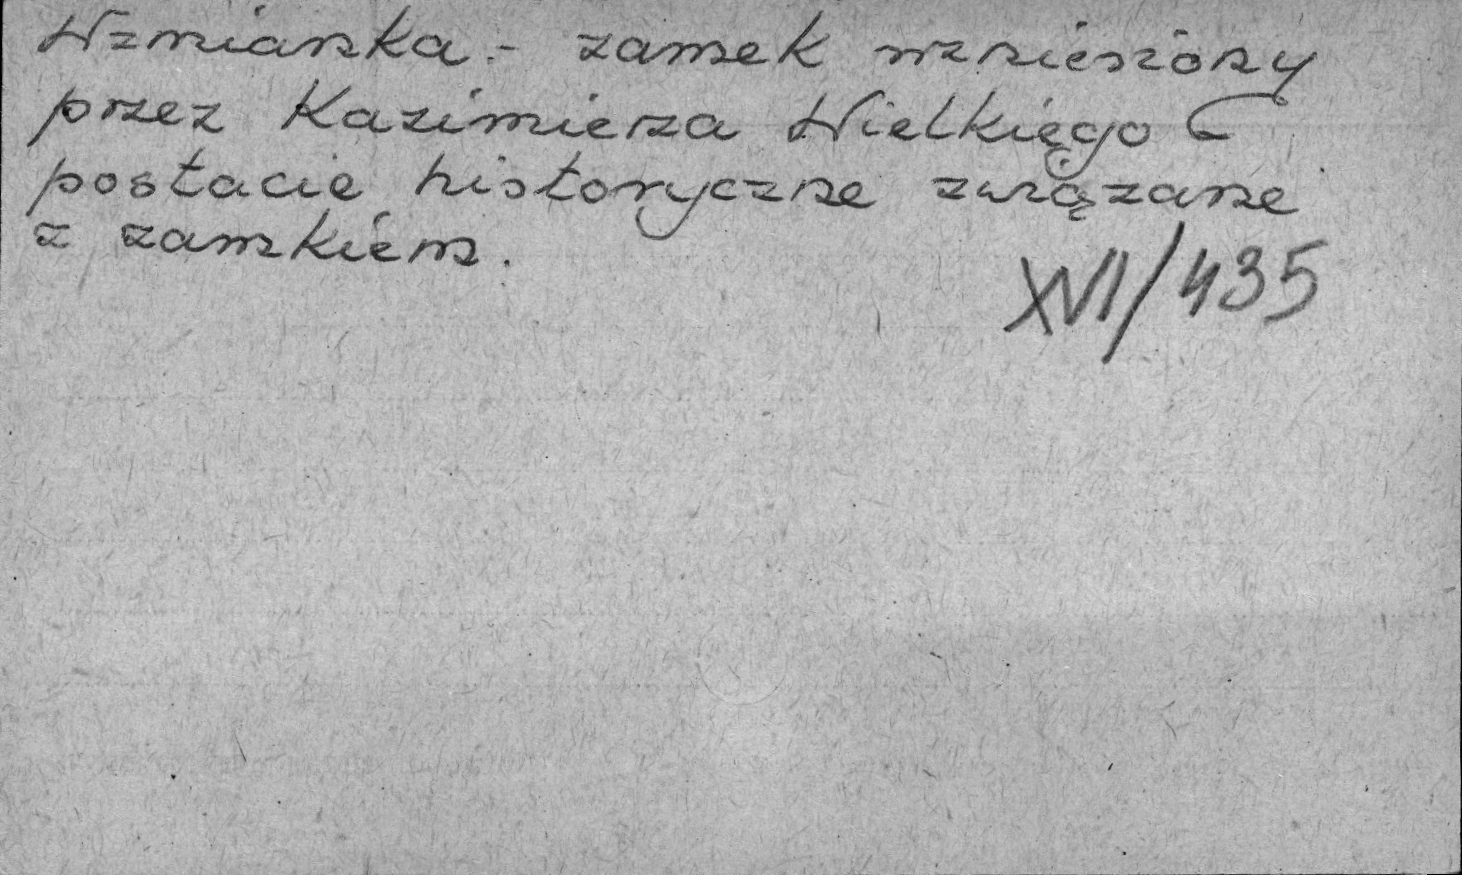 Wzmianka - zamek wzniesiony
przez Kazimierza Wielkiego
postacie historyczne związane
z zamkiem.
XVI/435